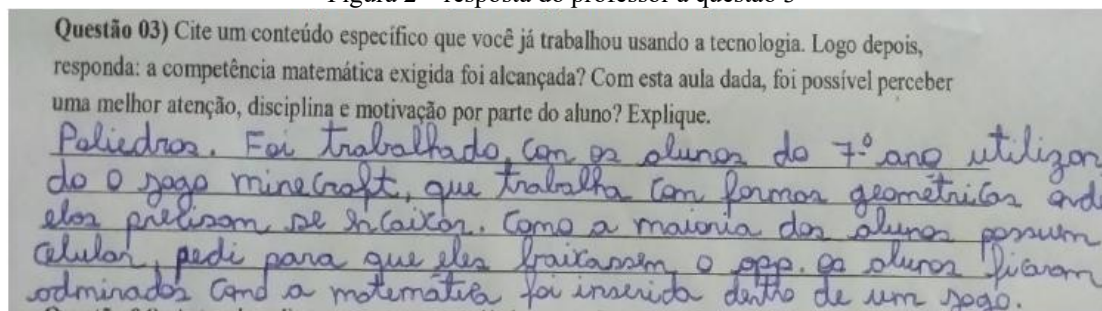 Figura 2 – resposta do professor a questão 3
Questão 03) Cite um conteúdo específico que você já trabalhou usando a tecnologia. Logo depois,
responda: a competência matemática exigida foi alcançada? Com esta aula dada, foi possível perceber
uma melhor atenção, disciplina e motivação por parte do aluno? Explique.
Poliedros. Foi trabalhado, con os alunos do 7º ano utilizan
do o jogo minecraft, que trabalha com formas geométricas ond
elas precisam se encaixar. Como a maioria dos alunos possuem
celular, pedi para que eles baixassem o app. Os alunos ficaram
admirados como a matemática foi inserida dentro de um jogo.